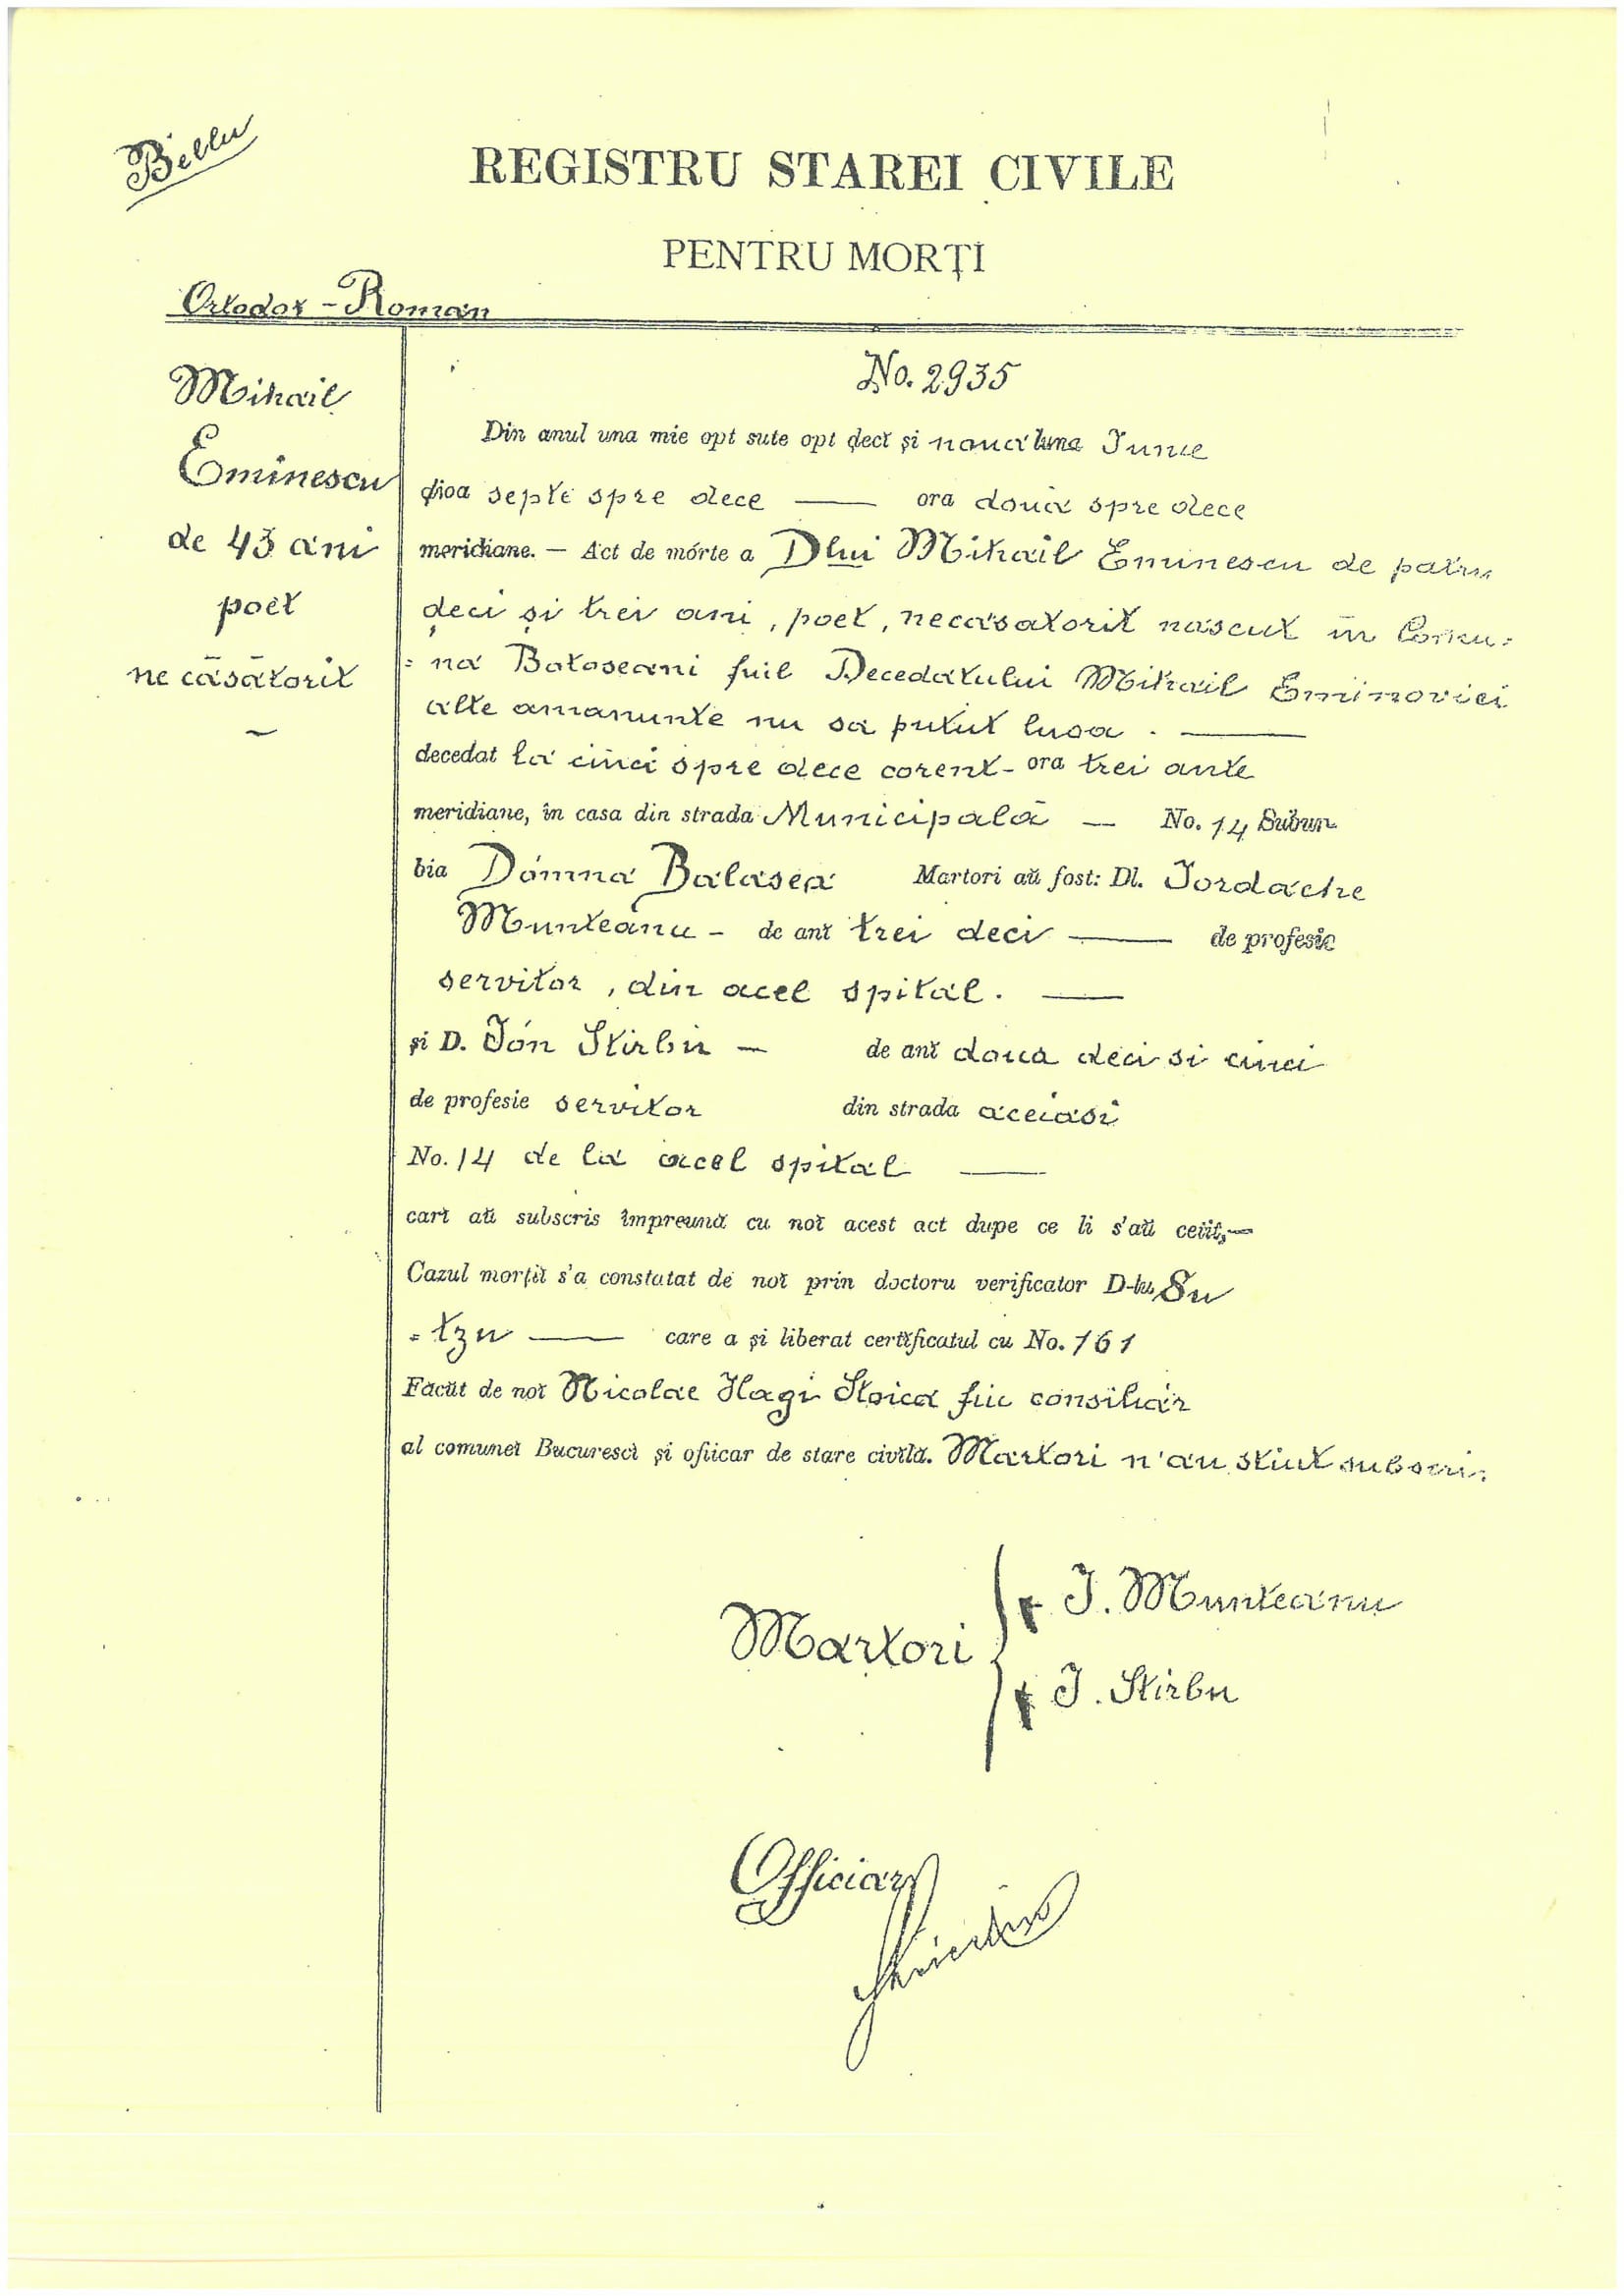 Bellu
REGISTRU STAREI CIVILE
PENTRU MORȚI
Ortodox - Român
Mihail
Eminescu
de 43 ani
poet
necăsătorit
No. 2935
Din anul una mie opt sute opt ḑecĭ și nouă luna Junie
ḑioa septe spre dece — ora două spre dece
meridiane. — Act de mórte a Dlui Mihail Eminescu de patru
ḑeci și trei ani, poet, necăsatorit născut în Comu=
=na Botoseani fiul Decedatului Mihail Eminovici
alte amanunte nu sa putut luoa. —
decedat la cinci spre dece corent - ora trei ante
meridiane, în casa din strada Municipală — No. 14 Subur
bia Dómna Balasea Martori aŭ fost: Dl. Iordache
Munteanu - de anĭ trei deci — de profesie
servitor, din acel spital. —
și D. Ión Stirbu — de anĭ doua deci si cinci
de profesie servitor din strada aceiasi
No. 14 de la acel spital —
carĭ aŭ subscris împreună cu noĭ acest act dupe ce li s'aŭ cetit,—
Cazul morțiĭ s'a constatat de noĭ prin doctoru verificator D-lu Su
=tzu — care a și liberat certificatul cu No. 161
Făcut de noĭ Nicolae Hagi Stoica fiu consiliar
al comuneĭ Bucurescĭ și ofiicar de stare civilă. Martori n'au stiut subscri.
Martori
+ J. Munteanu
+ J. Stirbu
Officiar